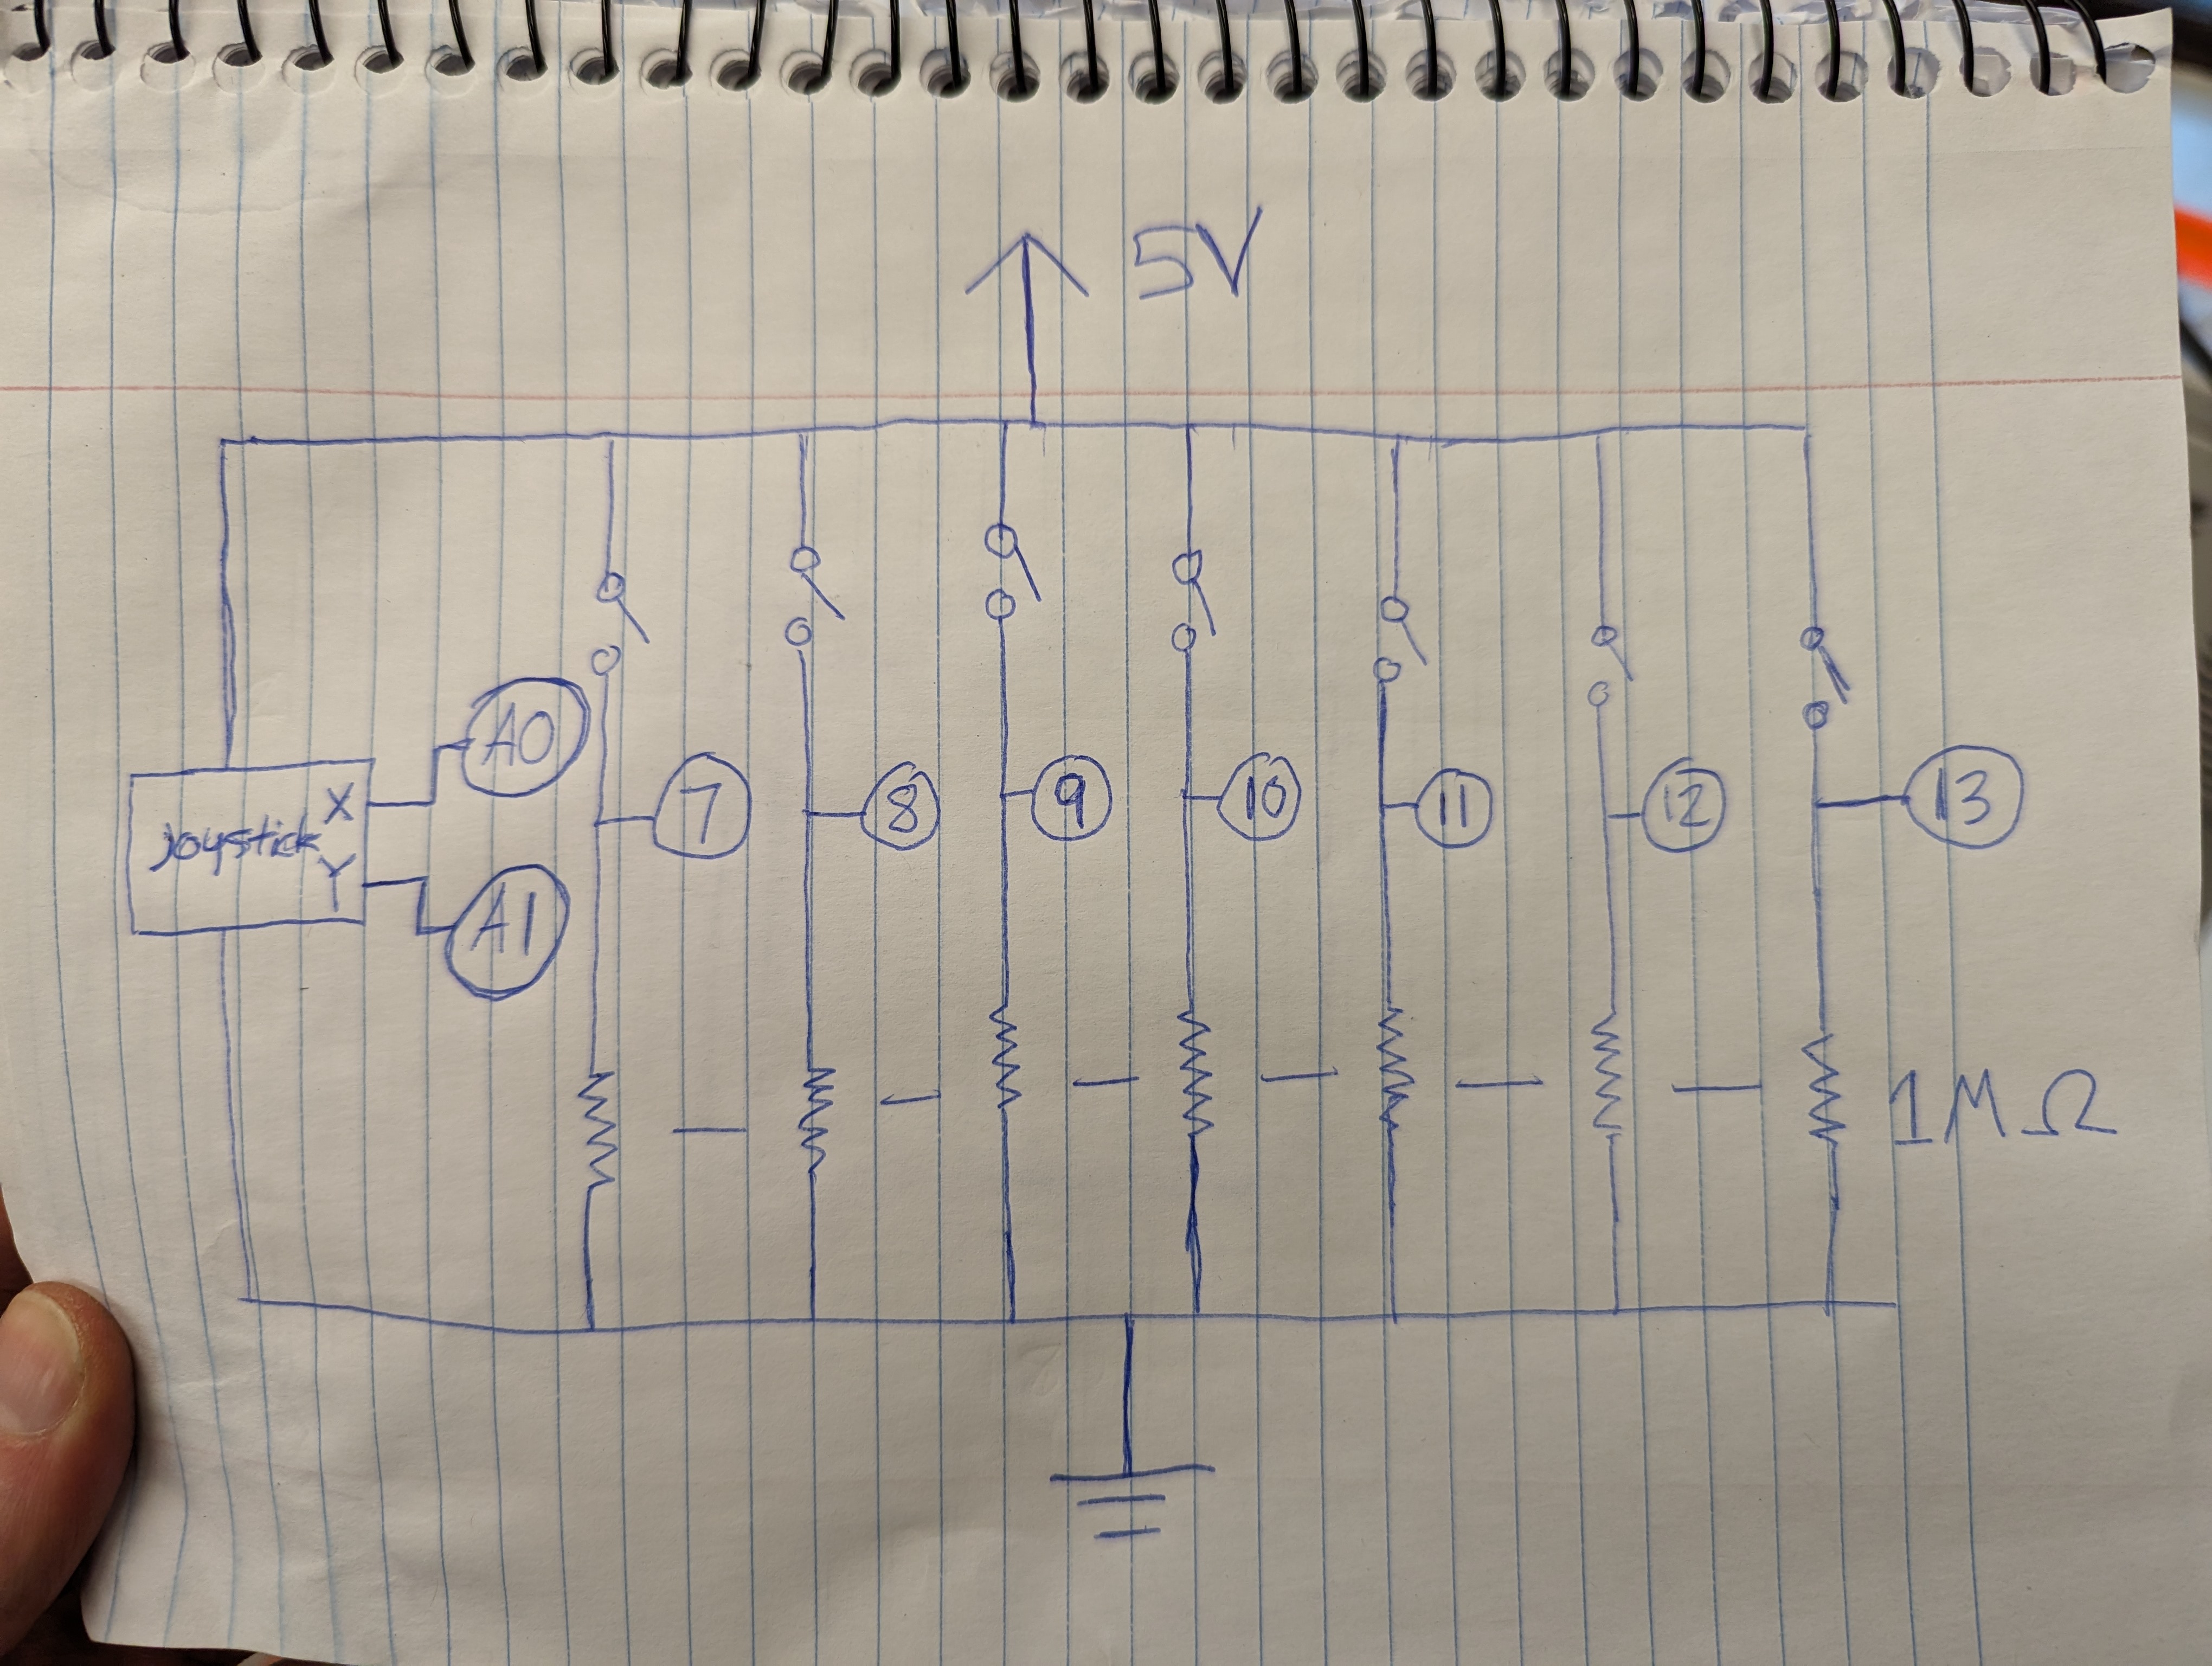 5V
A0
X
Joystick
Y
A1
7
8
9
10
11
12
13
1MΩ